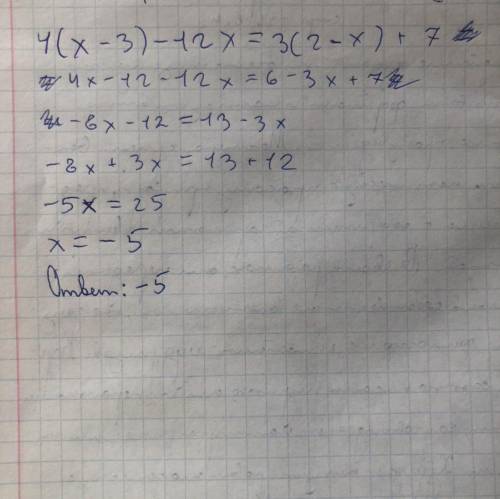 4(x-3)-12x=3(2-x)+7
4x-12-12x=6-3x+7
-8x-12=13-3x
-8x+3x=13+12
-5x=25
x=-5
Ответ: -5